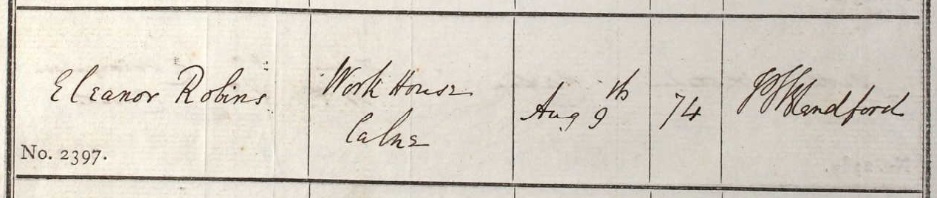 Eleanor Robins
No. 2397.
Work House
Calne
Aug 9th
74
Blandford